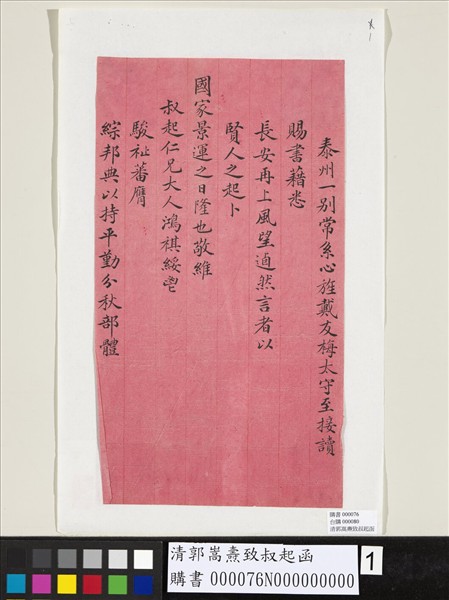 泰州一別常系心旌戴友梅太守至接讀
賜書藉悉
長安再上風望遒然言者以
賢人之起卜
國家景運之日隆也敬維
叔起仁兄大人鴻祺綏鬯
駿祉蕃膺
綜邦典以持平勤分秋部體
購書 000076
台購 000080
清郭嵩燾致叔起函
清郭嵩燾致叔起函
購書 000076N000000000
1